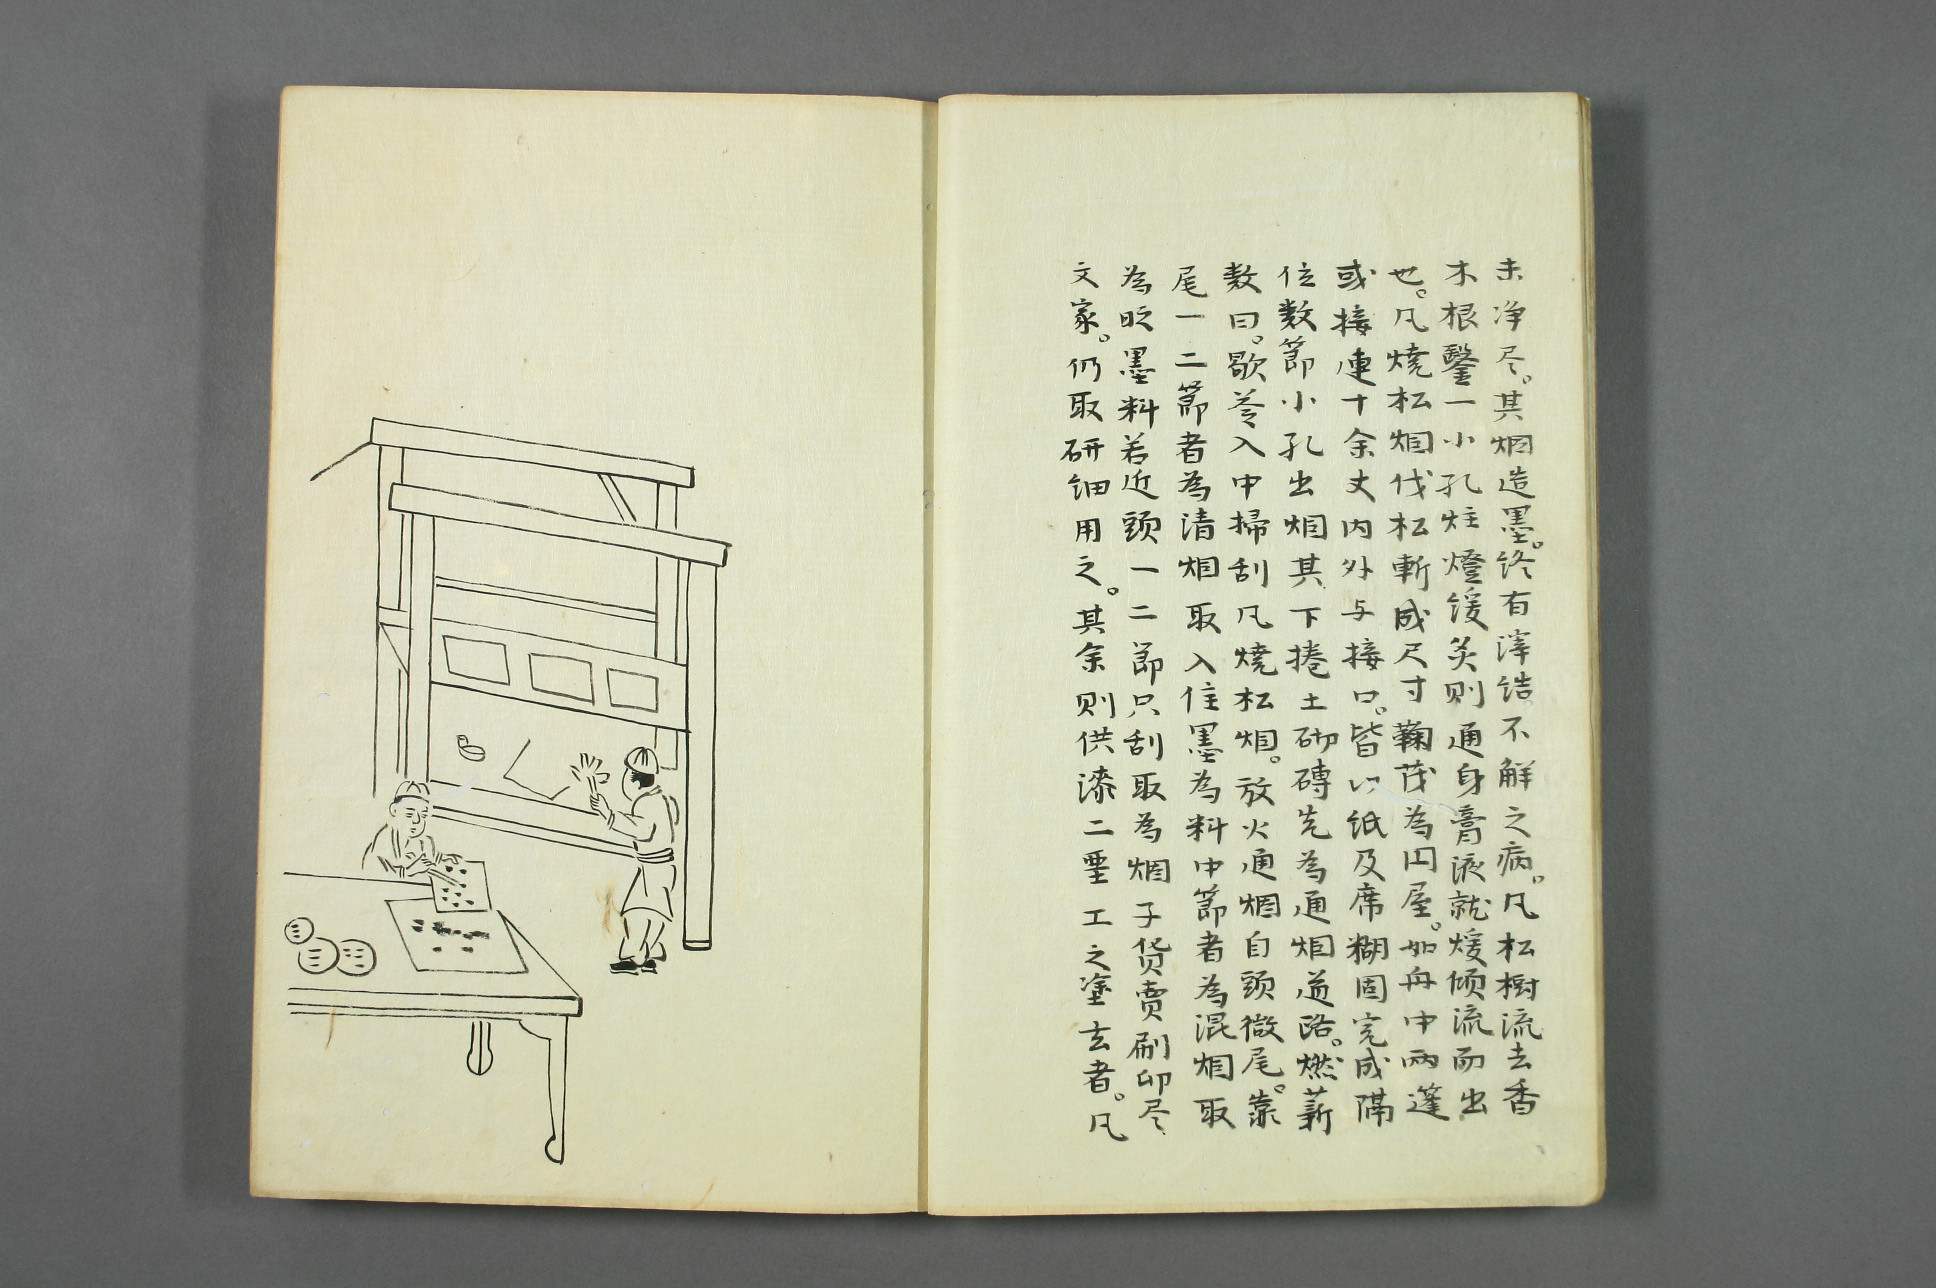 未净尽。其烟造墨。终有滓结不解之病。凡松樹流去香
木根鑿一小孔炷燈缓炙则通身膏液就煖倾流而出
也。凡燒松烟伐松斬成尺寸鞠茂為囚屋。如舟中两篷
或接連十余丈内外与接口。皆以纸及席糊固完成隔
位数節小孔出烟其下捲土砌磚先為通烟道路。燃薪
数曰。歇苓入中掃刮凡燒松烟。放火通烟自頭微尾。靠
尾一二節者為清烟取入住墨為料中節者為混烟取
為旼墨料若近頭一二節只刮取為烟子货賣刷印尽
文家。仍取研细用之。其余则供漆二垩工之塗玄者。凡